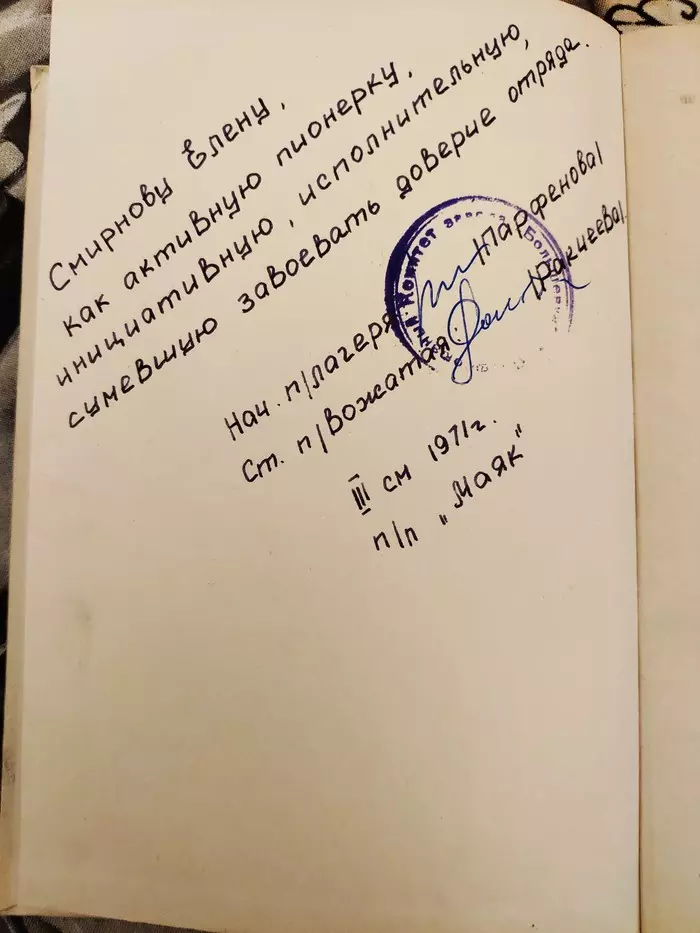 Смирнову Елену,
как активную пионерку,
инициативную, исполнительную,
сумевшую завоевать доверие отряда.
Нач. п/лагеря /Парфенова/
Ст. п/вожатая /
III см 1971г.
п/п „Маяк“
Комитет